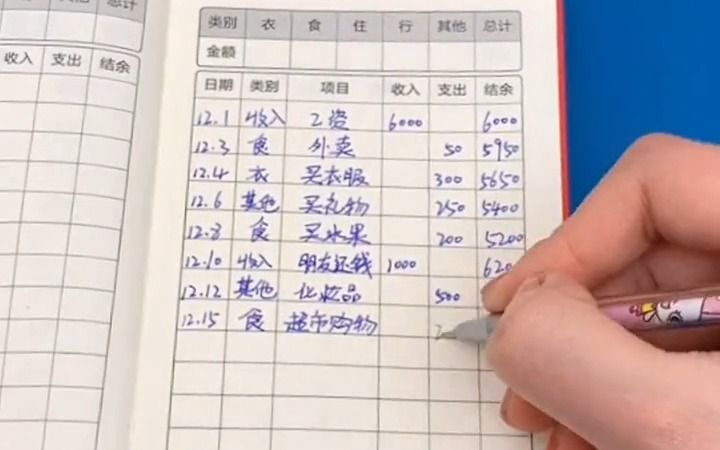 其他 总计
收入 支出 结余
类别 衣 食 住 行 其他 总计
金额
日期 类别 项目 收入 支出 结余
12.1 收入 工资 6000 6000
12.3 食 外卖 50 5950
12.4 衣 买衣服 300 5650
12.6 其他 买礼物 250 5400
12.8 食 买水果 200 5200
12.10 收入 朋友还钱 1000
12.12 其他 化妆品 500
12.15 食 超市购物